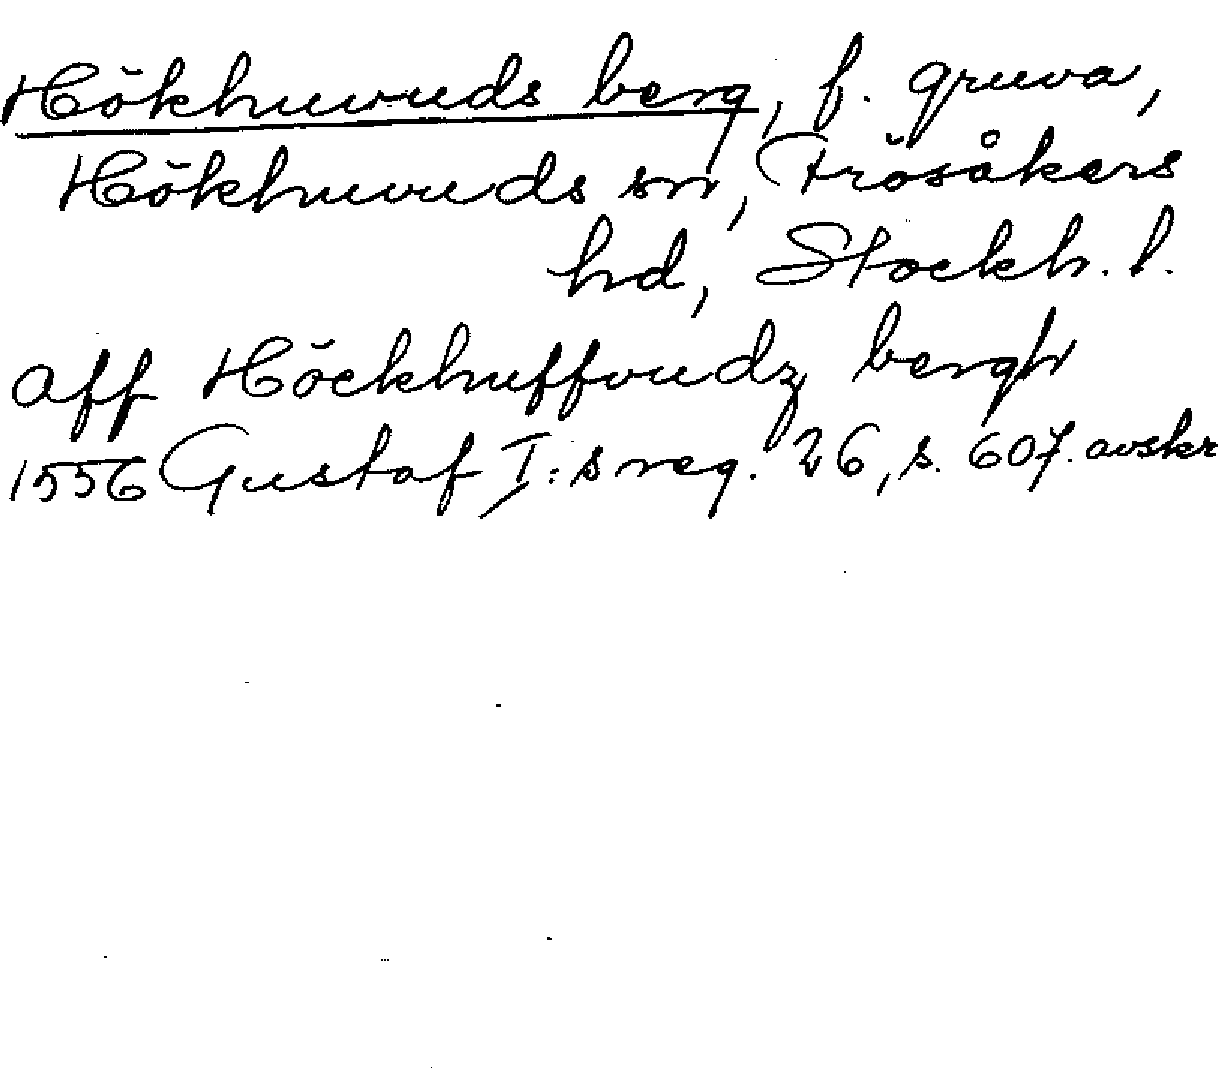 Hökhuvuds berg, f. gruva,
Hökhuvuds sn, Frösåkers
hd, Stockh. l.
aff Höckhuffvudz bergh
1556 Gustaf I:s reg. 26, s. 607. avskr